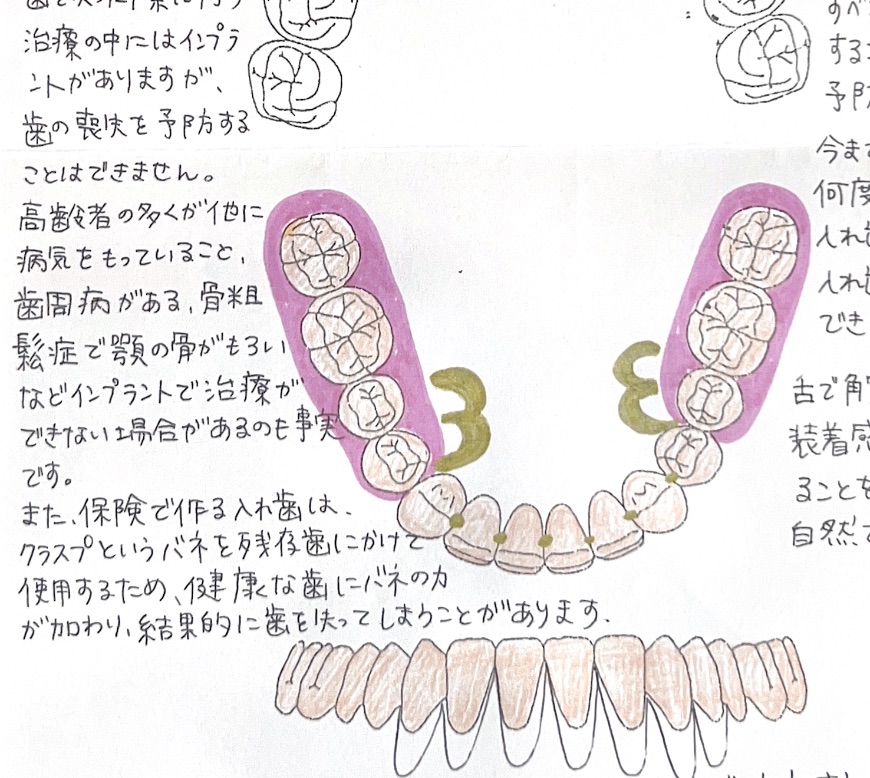 治療の中にはインプラ
ントがありますが、
歯の喪失を予防する
ことはできません。
高齢者の多くが他に
病気をもっていること、
歯周病がある、骨粗
鬆症で顎の骨がもろい
などインプラントで治療が
できない場合があるのも事実
です。
また、保険で作る入れ歯は、
クラスプというバネを残存歯にかけて
使用するため、健康な歯にバネの力
が加わり、結果的に歯を失ってしまうことがあります.
すべ
する
予防
今まで
何度
入れ歯
入れ歯
でき
舌で
装着感
ることを
自然